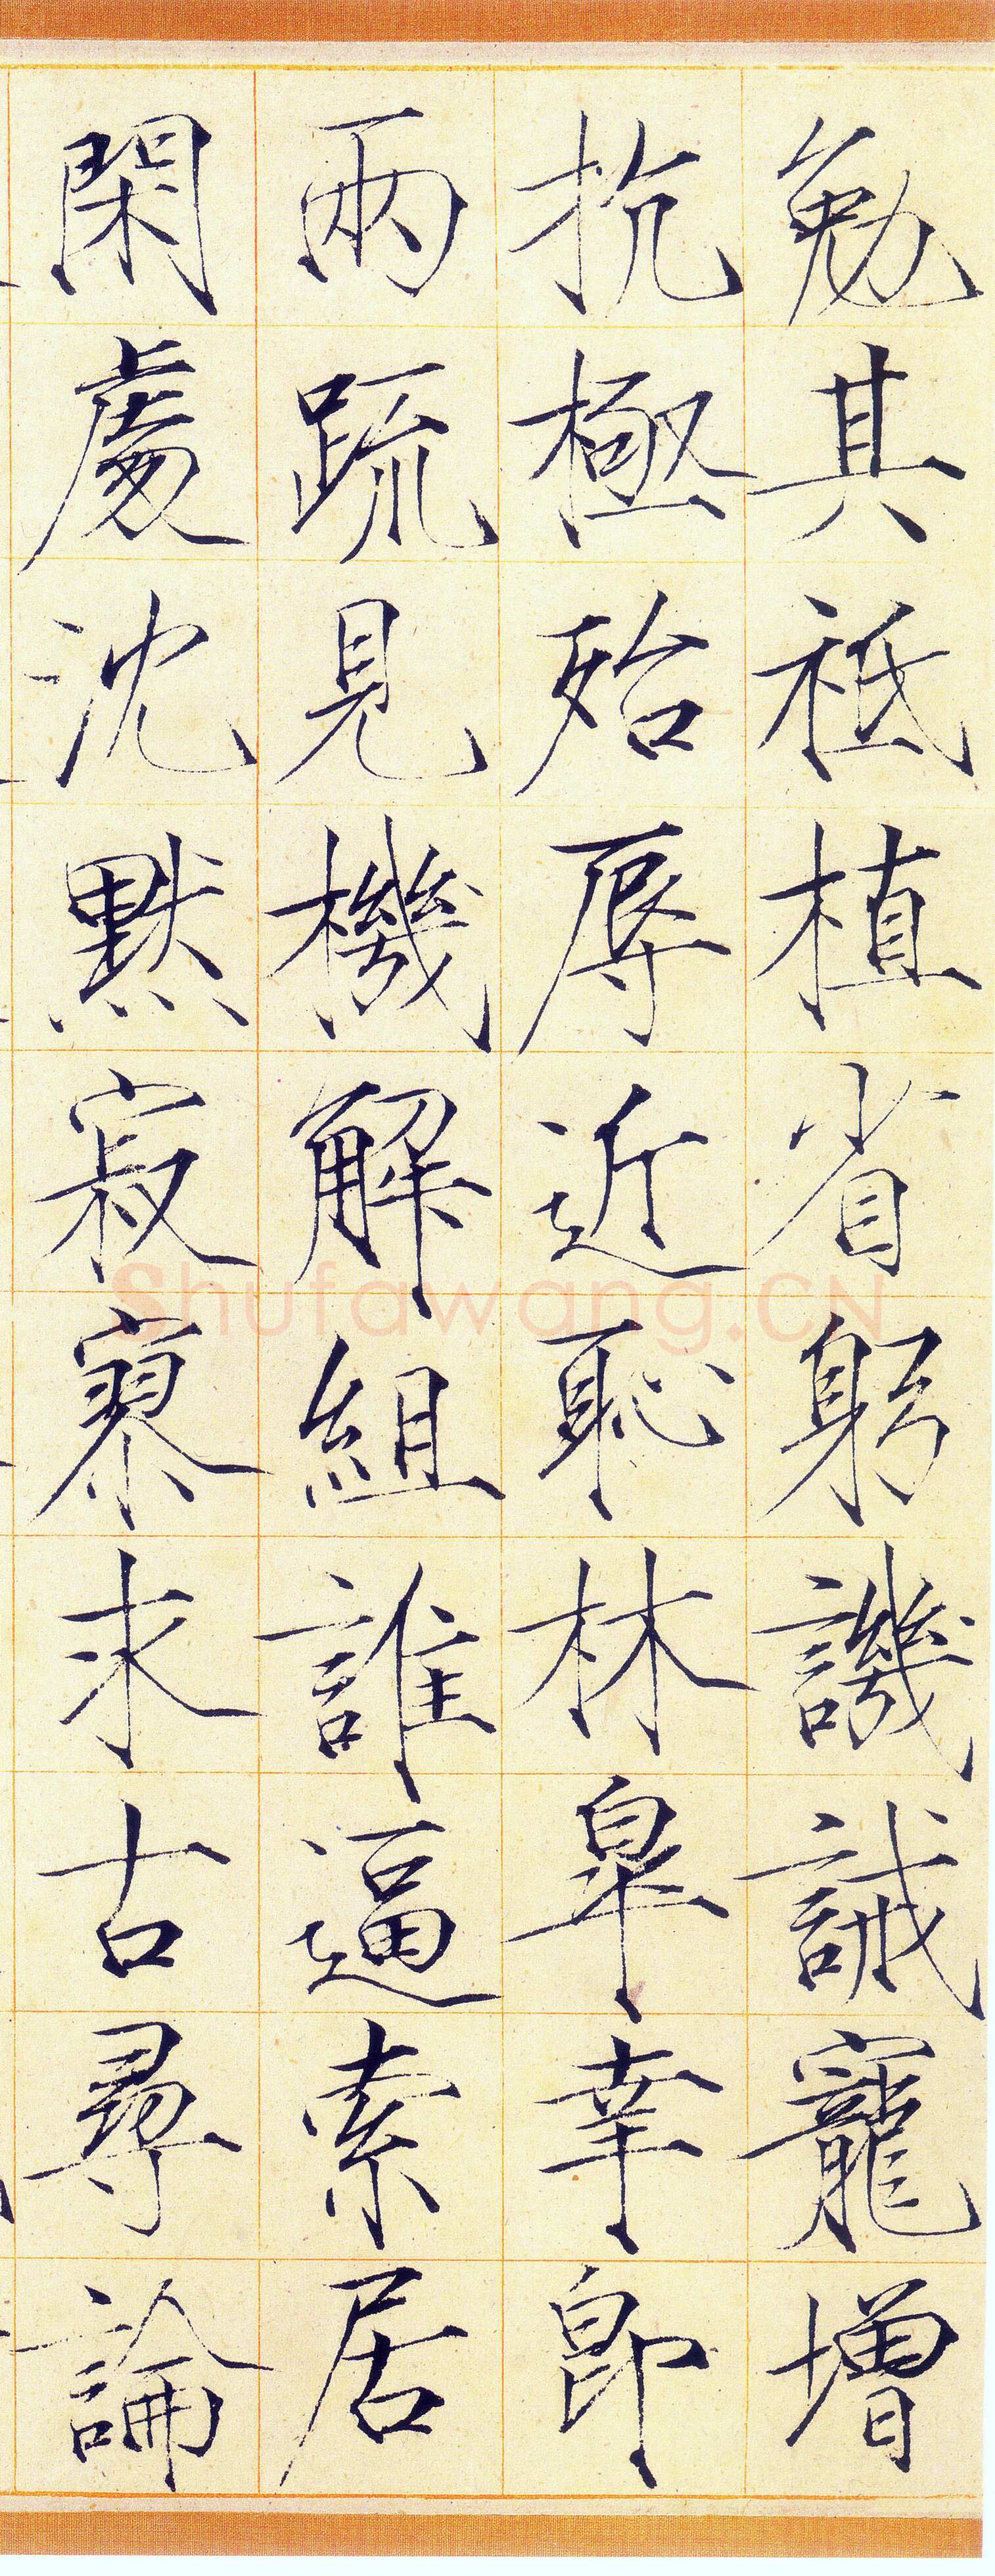 勉其祗植省躬譏誡寵增
抗極殆辱近恥林皋幸即
兩疏見機解組誰逼索居
閑處沈默寂寥求古尋論
Shufawang.CN